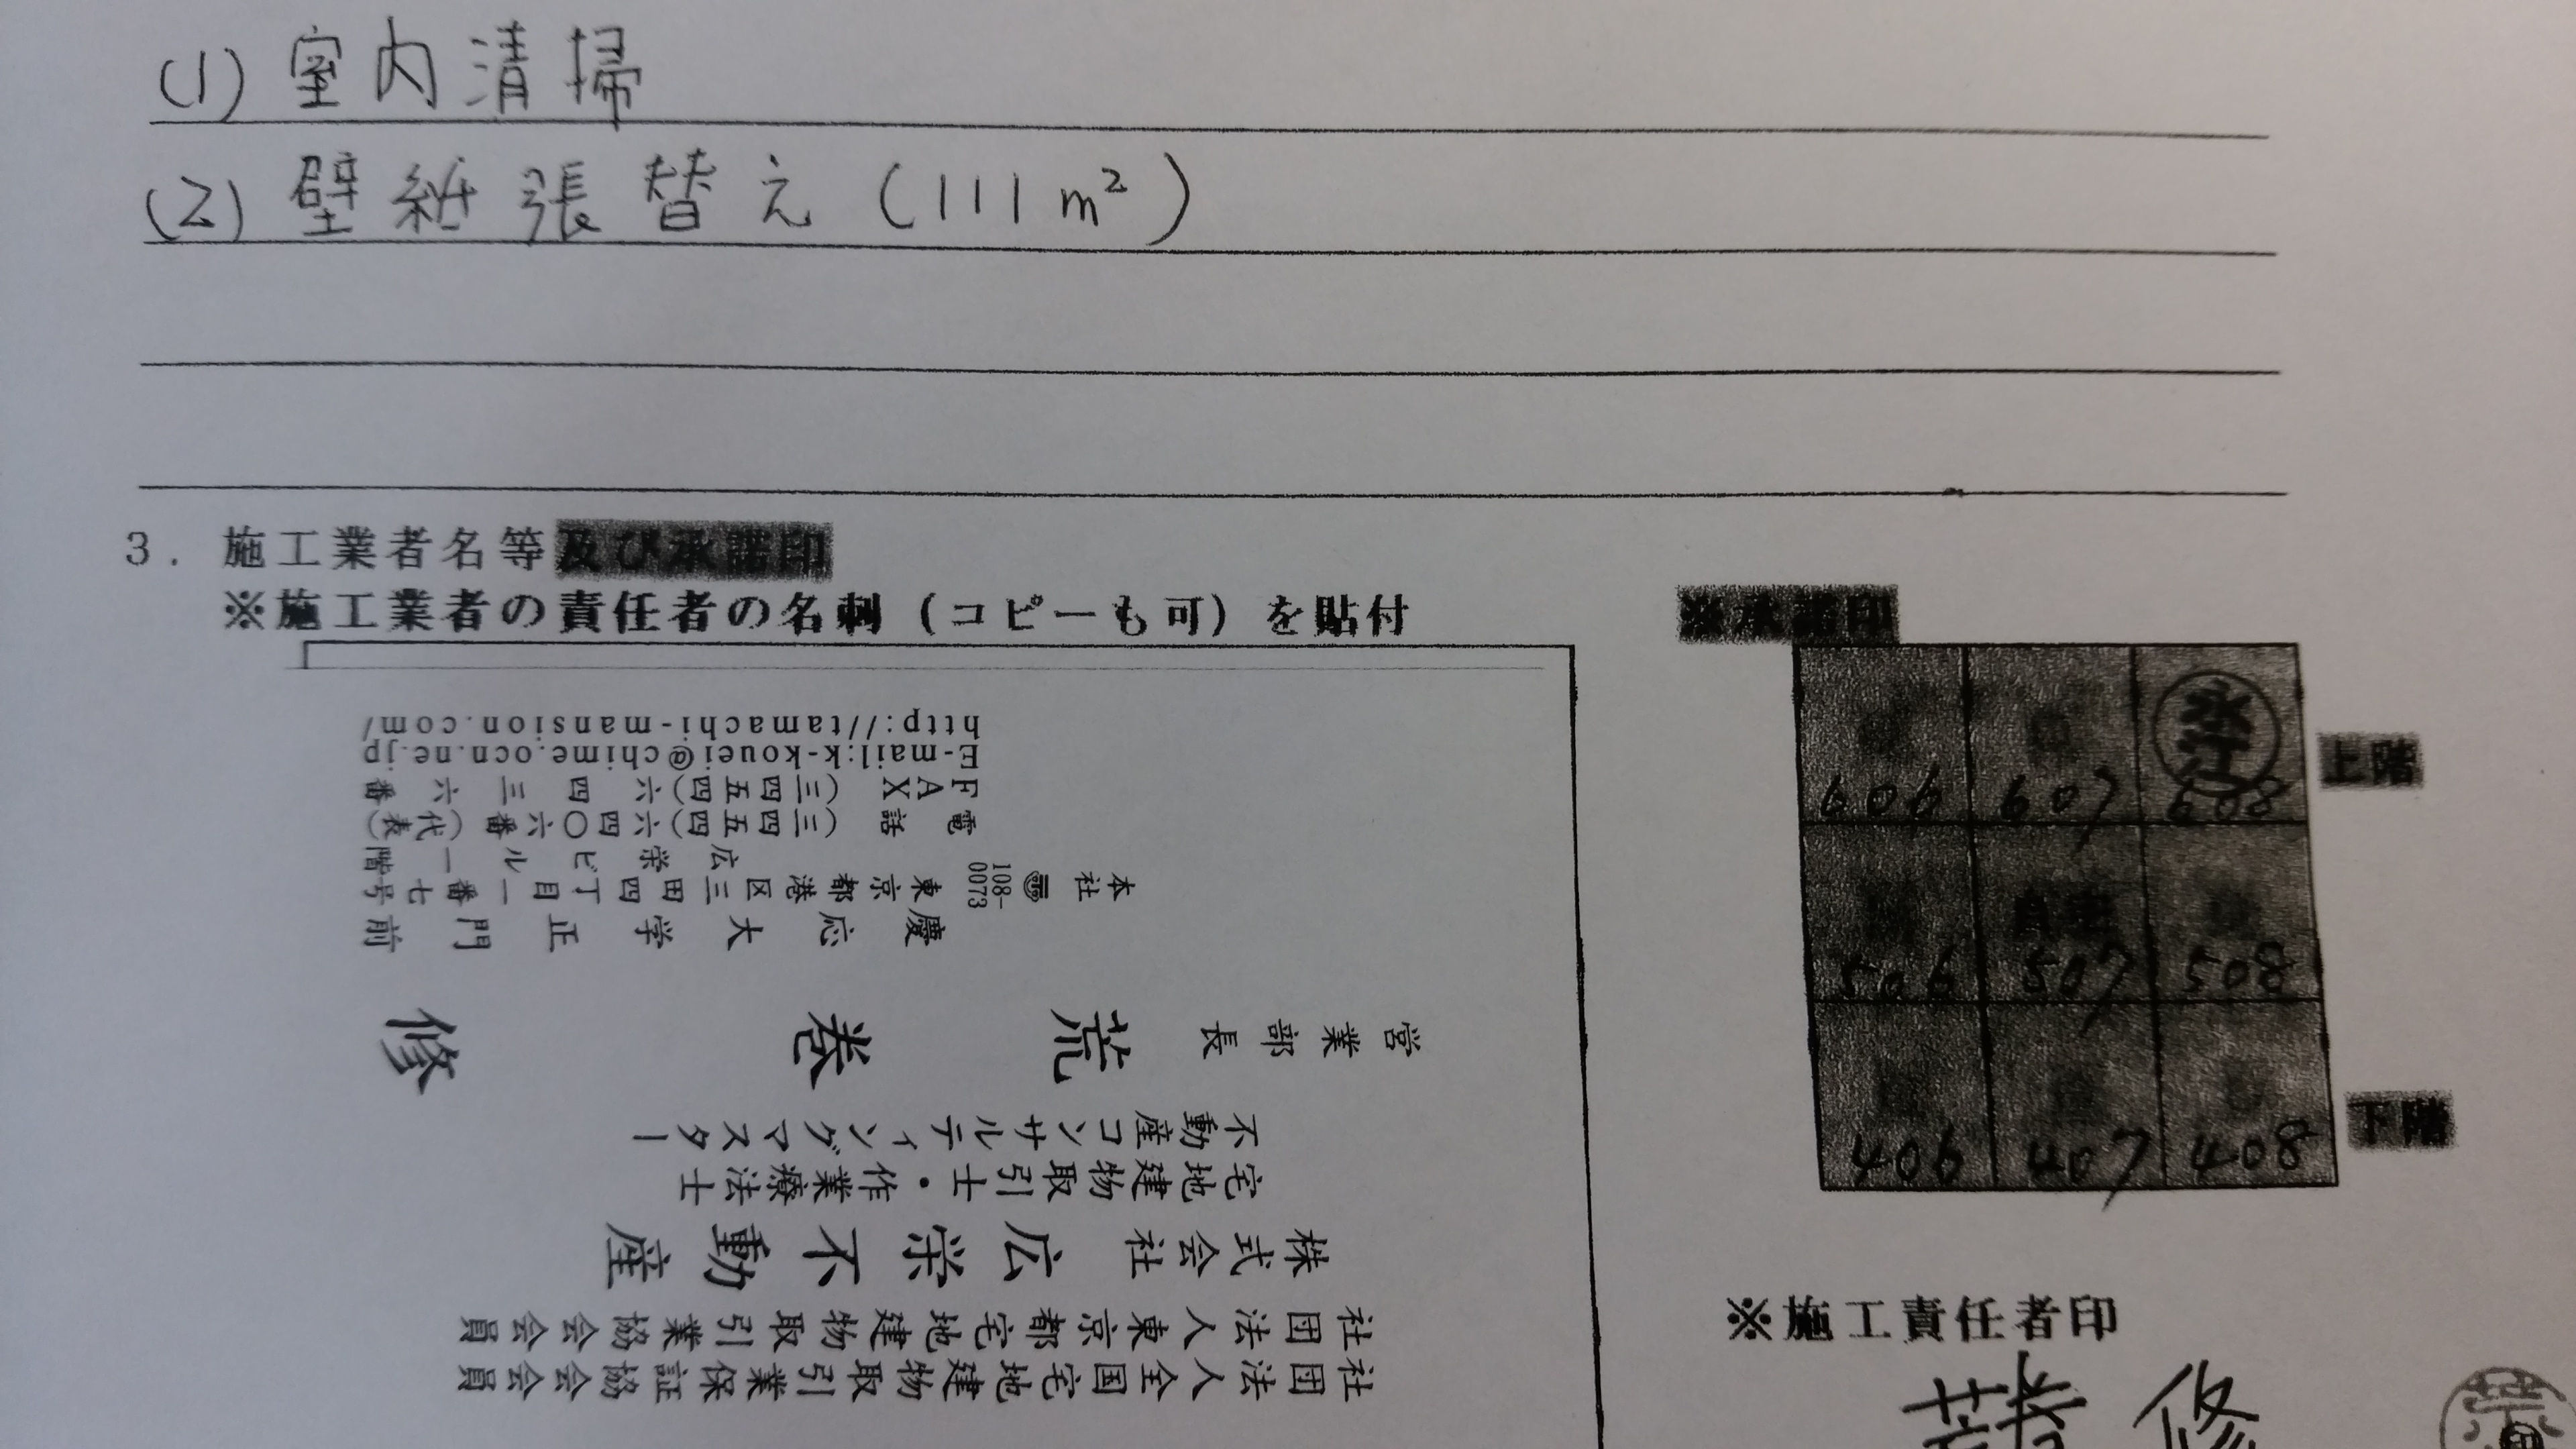 (1) 室内清掃
(2) 壁紙張替え (111m²)
3. 施工業者名等及び承諾印
※施工業者の責任者の名刺(コピーも可)を貼付
※承諾印
社団法人全国宅地建物取引業保証協会会員
社団法人東京都宅地建物取引業協会会員
株式会社 広栄不動産
宅地建物取引士・作業療法士
不動産コンサルティングマスター
営業部長 荒巻 修
慶応大学正門前
本社 〒108-0073 東京都港区三田四丁目一番七号
広栄ビル一階
電話 (三四五四)六四〇六番(代表)
FAX (三四五四)六四三六番
E-mail:k-kouei@chime.ocn.ne.jp
http://tamachi-mansion.com/
606 607 608
上階
506 507 508
406 407 408
下階
※施工責任者印
修